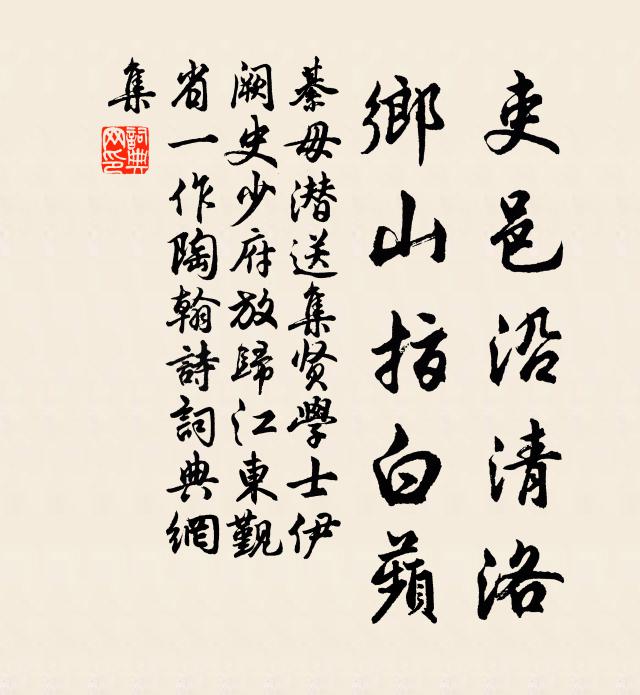 吏邑沿清洛
鄉山指白蘋
綦毋潜送集贤學士伊
阙史少府放歸江東觐
省一作陶翰詩詞典網
集
詞典
网印